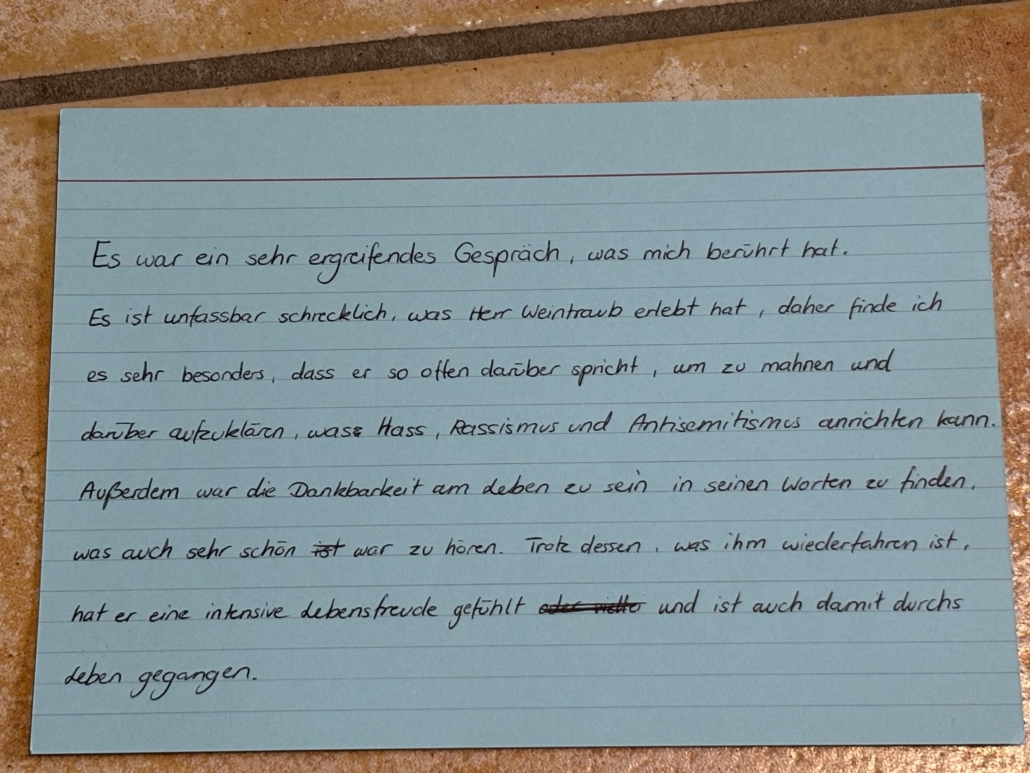 Es war ein sehr ergreifendes Gespräch, was mich berührt hat.
Es ist unfassbar schrecklich, was Herr Weintraub erlebt hat, daher finde ich
es sehr besonders, dass er so offen darüber spricht, um zu mahnen und
darüber aufzuklären, was Hass, Rassismus und Antisemitismus anrichten kann.
Außerdem war die Dankbarkeit am Leben zu sein in seinen Worten zu finden,
was auch sehr schön ist war zu hören. Trotz dessen, was ihm wiederfahren ist,
hat er eine intensive Lebensfreude gefühlt und ist auch damit durchs
Leben gegangen.